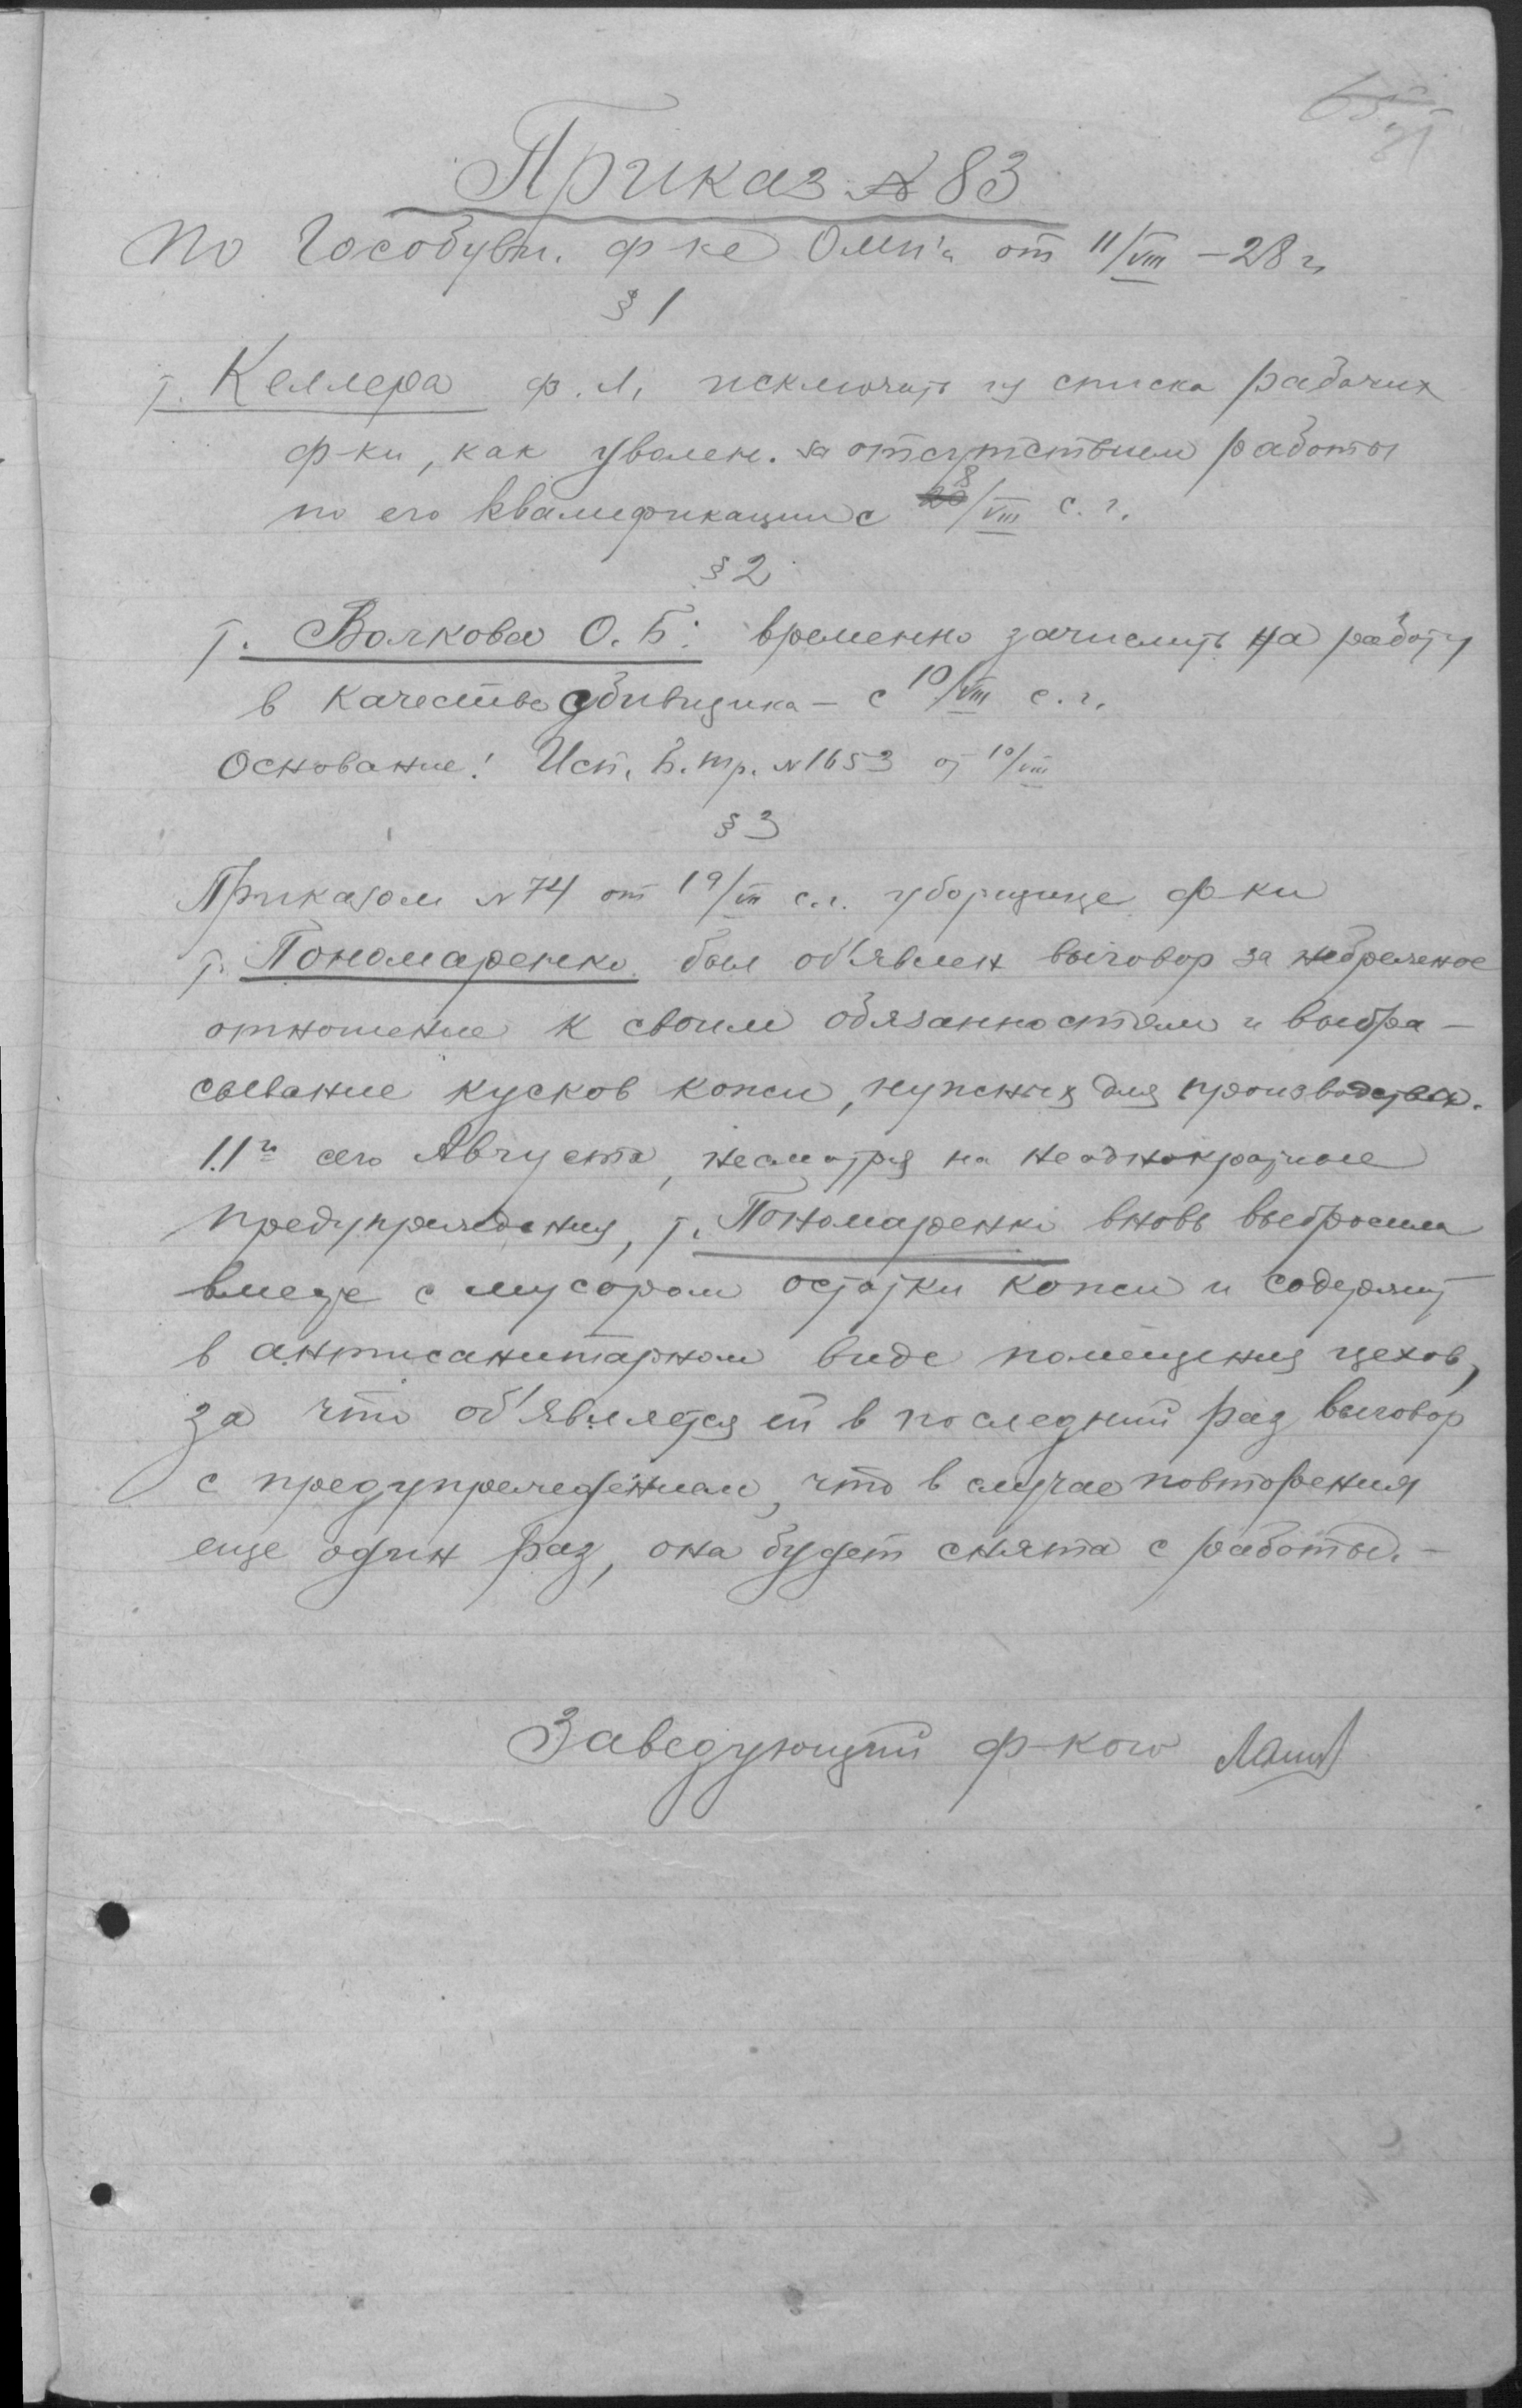 Приказ № 83
По Гособувн. ф-ке от 11/VIII – 28 г.
§ 1
т. Келлера Ф. Л. исключить из списка рабочих
ф-ки, как уволен. за отсутствием работы
по его квалификации с 8/VIII с. г.
§ 2
т. Волкова О. Б. временно зачислить на работу
в качестве сбивщика – с 10/VIII с. г.
Основание: Исп. Б. тр. № 1653 от 10/VIII
§ 3
Приказом № 74 от 19/VII с. г. уборщице ф-ки
т. Пономаренко был об'явлен выговор за небрежное
отношение к своим обязанностям и выбра-
сывание кусков кожи, нужных для производства.
11го сего Августа, несмотря на неоднократные
предупреждения, т. Пономаренко вновь выбросила
вместе с мусором остатки кожи и содержит
в антисанитарном виде помещения цехов,
за что об'является ей в последний раз выговор
с предупреждением, что в случае повторения
еще один раз, она будет снята с работы. –
Заведующий ф-кой